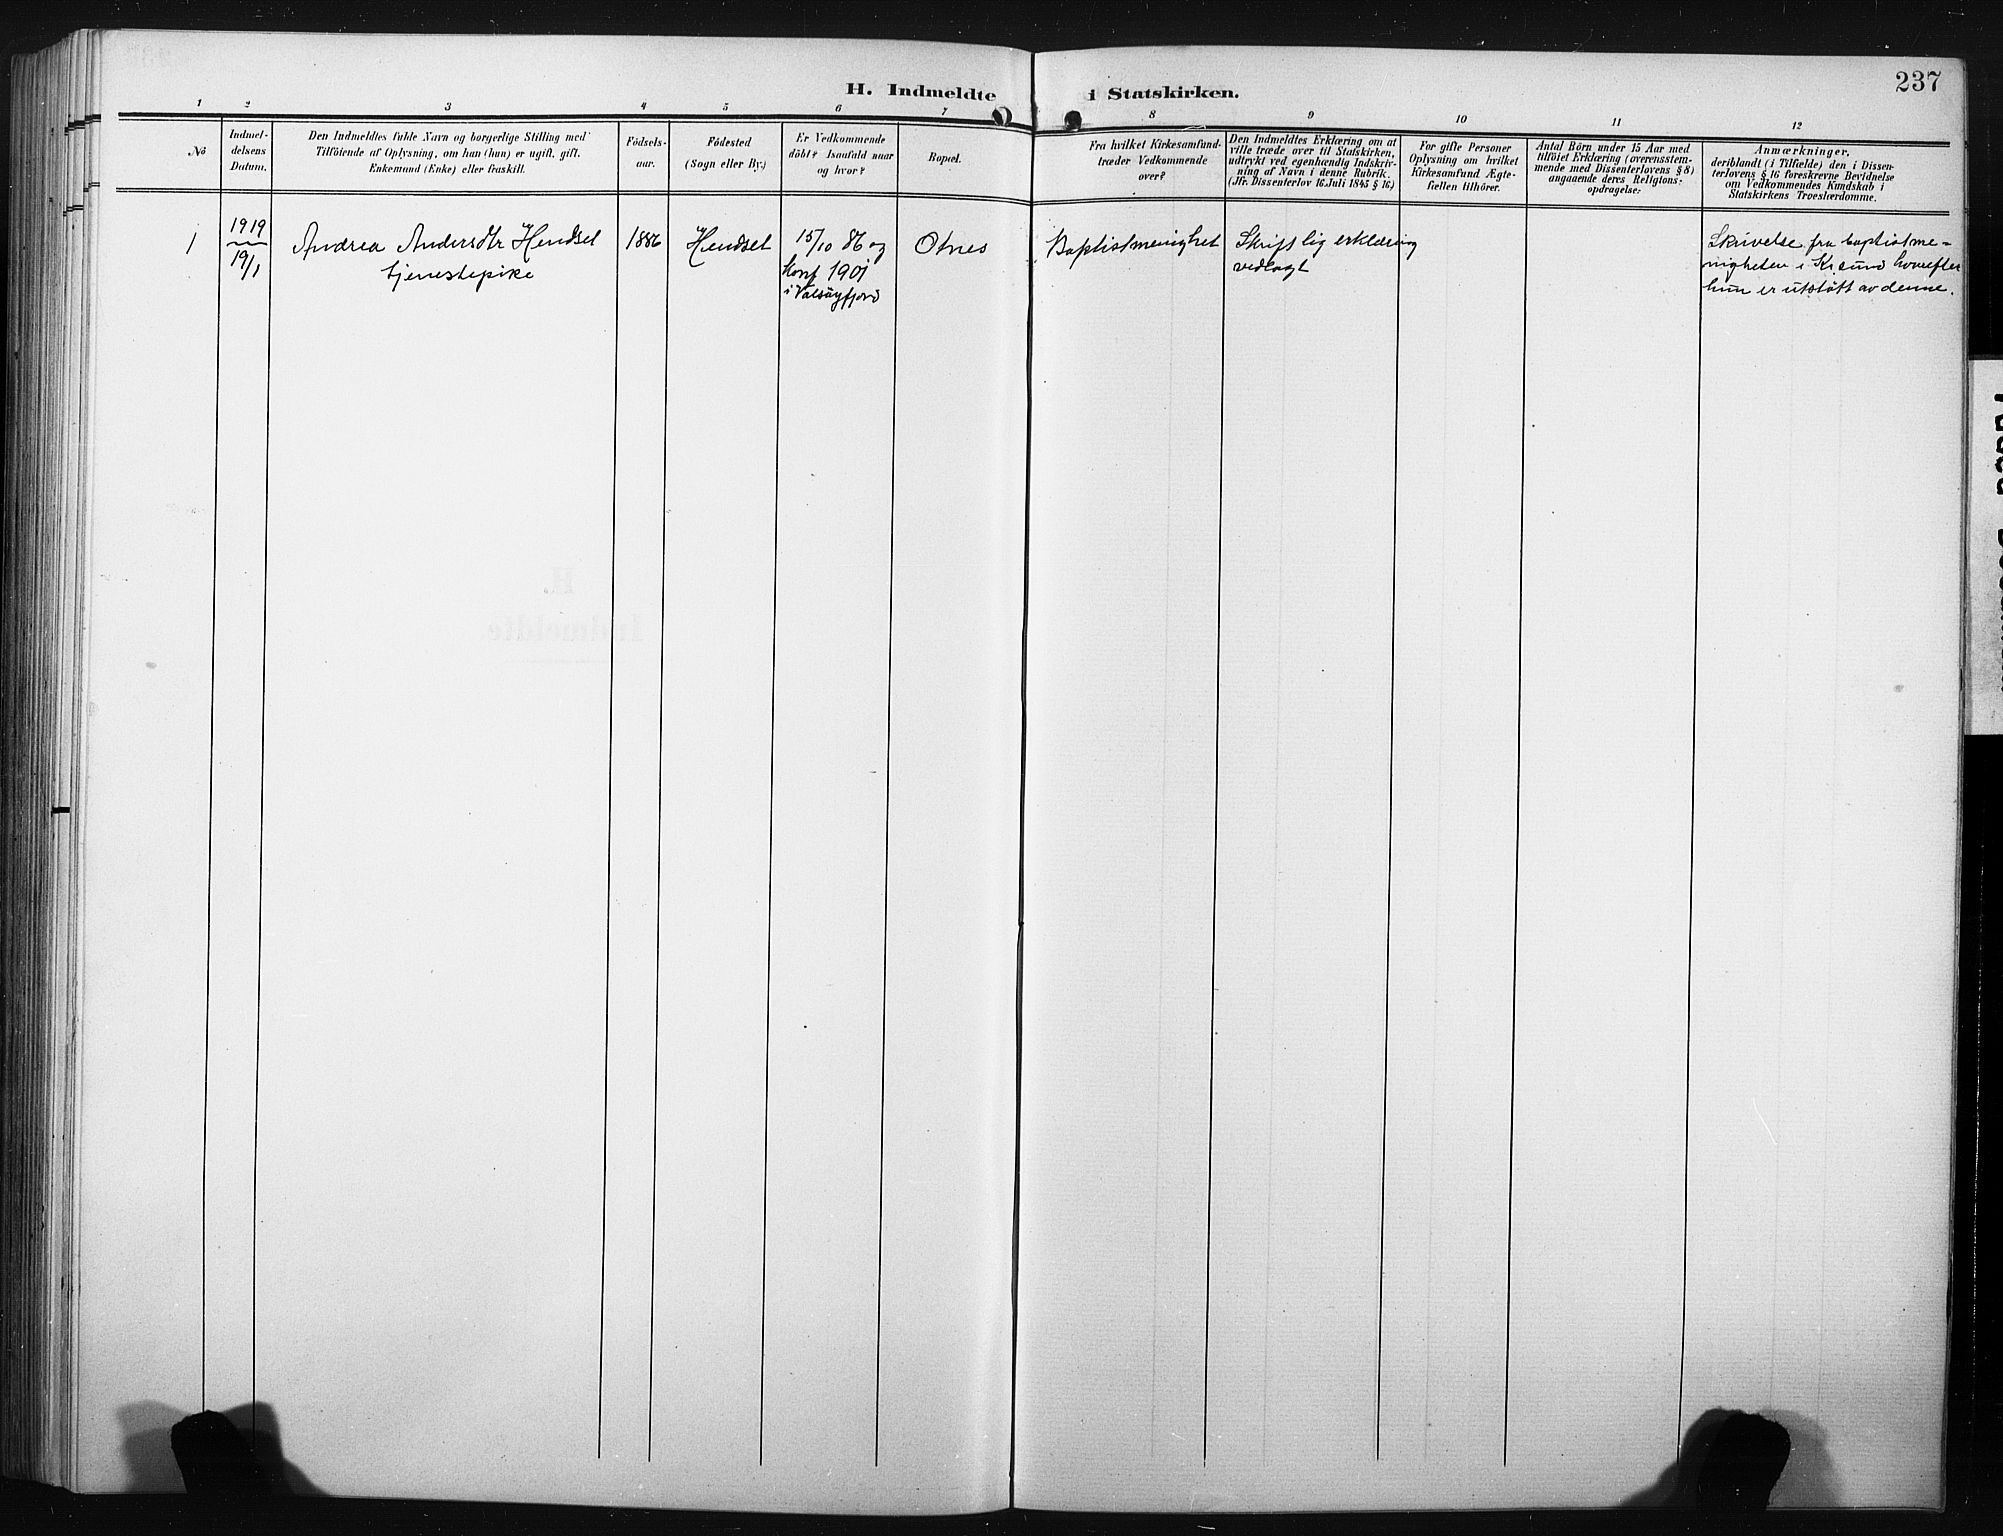 237
H. Indmeldte i Statskirken.
1 2 3 4 5 6 7 8 9 10 11 12
No
Indmel-
delsens
Datum.
Den Indmeldtes fulde Navn og borgerlige Stilling med
Tilföiende af Oplysning, om han (hun) er ugift, gift,
Enkemand (Enke) eller fraskilt.
Födsels-
aar.
Födested
(Sogn eller By.)
Er Vedkommende
döbt? Isaafald naar
og hvor?
Bopæl.
Fra hvilket Kirkesamfund
træder Vedkommende
over?
Den Indmeldtes Erklæring om at
ville træde over til Statskirken,
udtrykt ved egenhændig Indskriv-
ning af Navn i denne Rubrik.
(Jfr. Dissenterlov 16 Juli 1845 § 16)
For gifte Personer
Oplysning om hvilket
Kirkesamfund Ægte-
fællen tilhörer.
Antal Börn under 15 Aar med
tilföiet Erklæring (overensstem-
mende med Dissenterlovens § 8)
angaaende deres Religions-
opdragelse:
Anmærkninger,
deriblandt (i Tilfælde) den i Dissen-
terlovens § 16 foreskrevne Bevidnelse
om Vedkommendes Kundskab i
Statskirkens Troeslærdomme.
1
1919
19/1
Andrea Andersdtr Hendset
tjenestepike
1886
Hendset
15/10 86 og
konf 1901
i Valsøyfjord
Otnes
Baptistmenighet
Skriftlig erklæring
vedlagt
Skrivelse fra baptistme-
nigheten i Kr.sund hvorefter
hun er utstøtt av denne.
H.
Indmeldte.